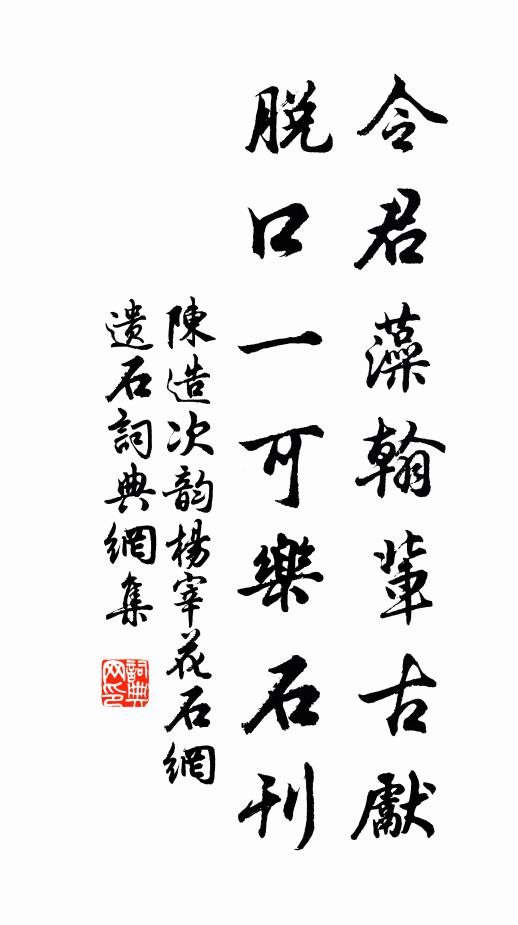 令君藻翰輩古獻
脫口一可樂石刊
陳造次韵楊宰花石綱
遺石詞典網集
詞典
网印